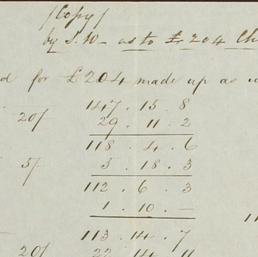 (Copy)
by J. W— as to £204 Ch
d for £204 made up as
147 . 15 . 8
20/ 29 . 11 . 2
118 . 4 . 6
5/ 5 . 18 . 3
112 . 6 . 3
1 . 10 . —
113 . 14 . 7
20/ 22 . 14 . 11